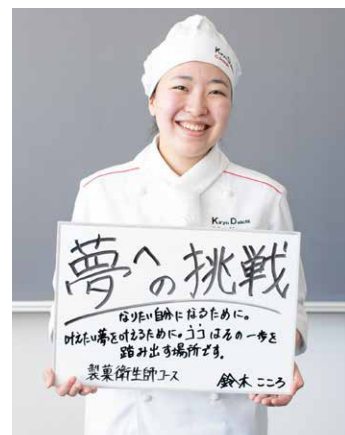 Kiryu Daiichi
夢への挑戦
なりたい自分になるために。
叶えたい夢を叶えるために。ココはその一歩を
踏み出す場所です。
製菓衛生師コース 鈴木 こころ